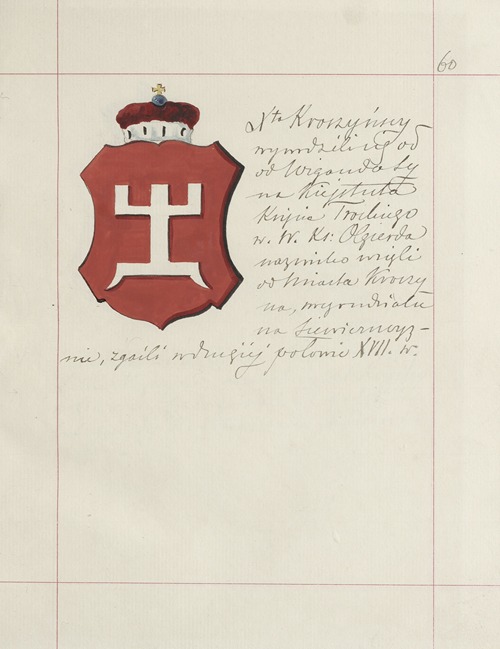 60
Nta Kroszyńscy
wywodzili się od
od Wiganda sy
na Kiejstuta
Księcia Trockiego
w. W. Ks: Olgierda
nazwisko wzięli
od miasta Kroszy
na,
na Siewierszczyz-
nie, zgaśli w drugiéj połowie XVII. w.